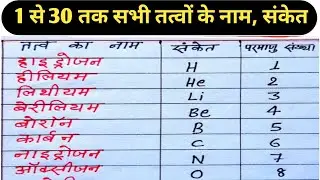 1 से 30 तक सभी तत्वों के नाम, संकेत
तत्व का नाम संकेत परमाणु संख्या
हाइड्रोजन H 1
हीलियम He 2
लिथीयम Li 3
बेरीलियम Be 4
बोरॉन B 5
कार्बन C 6
नाइट्रोजन N 7
ऑक्सीजन O 8